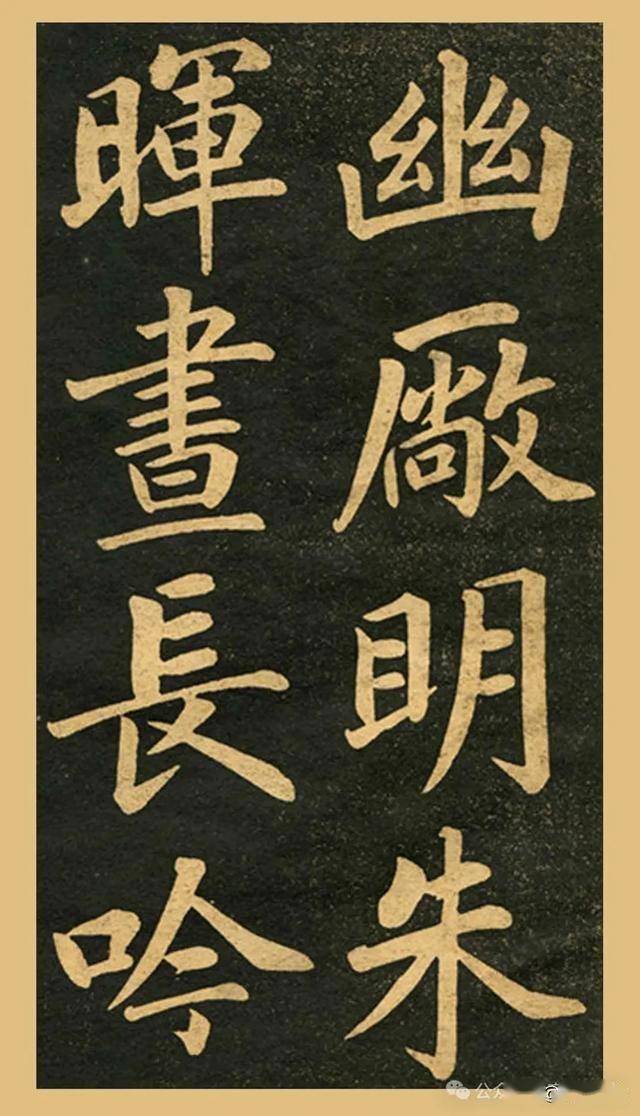 幽厰明朱
暉晝長吟
公众